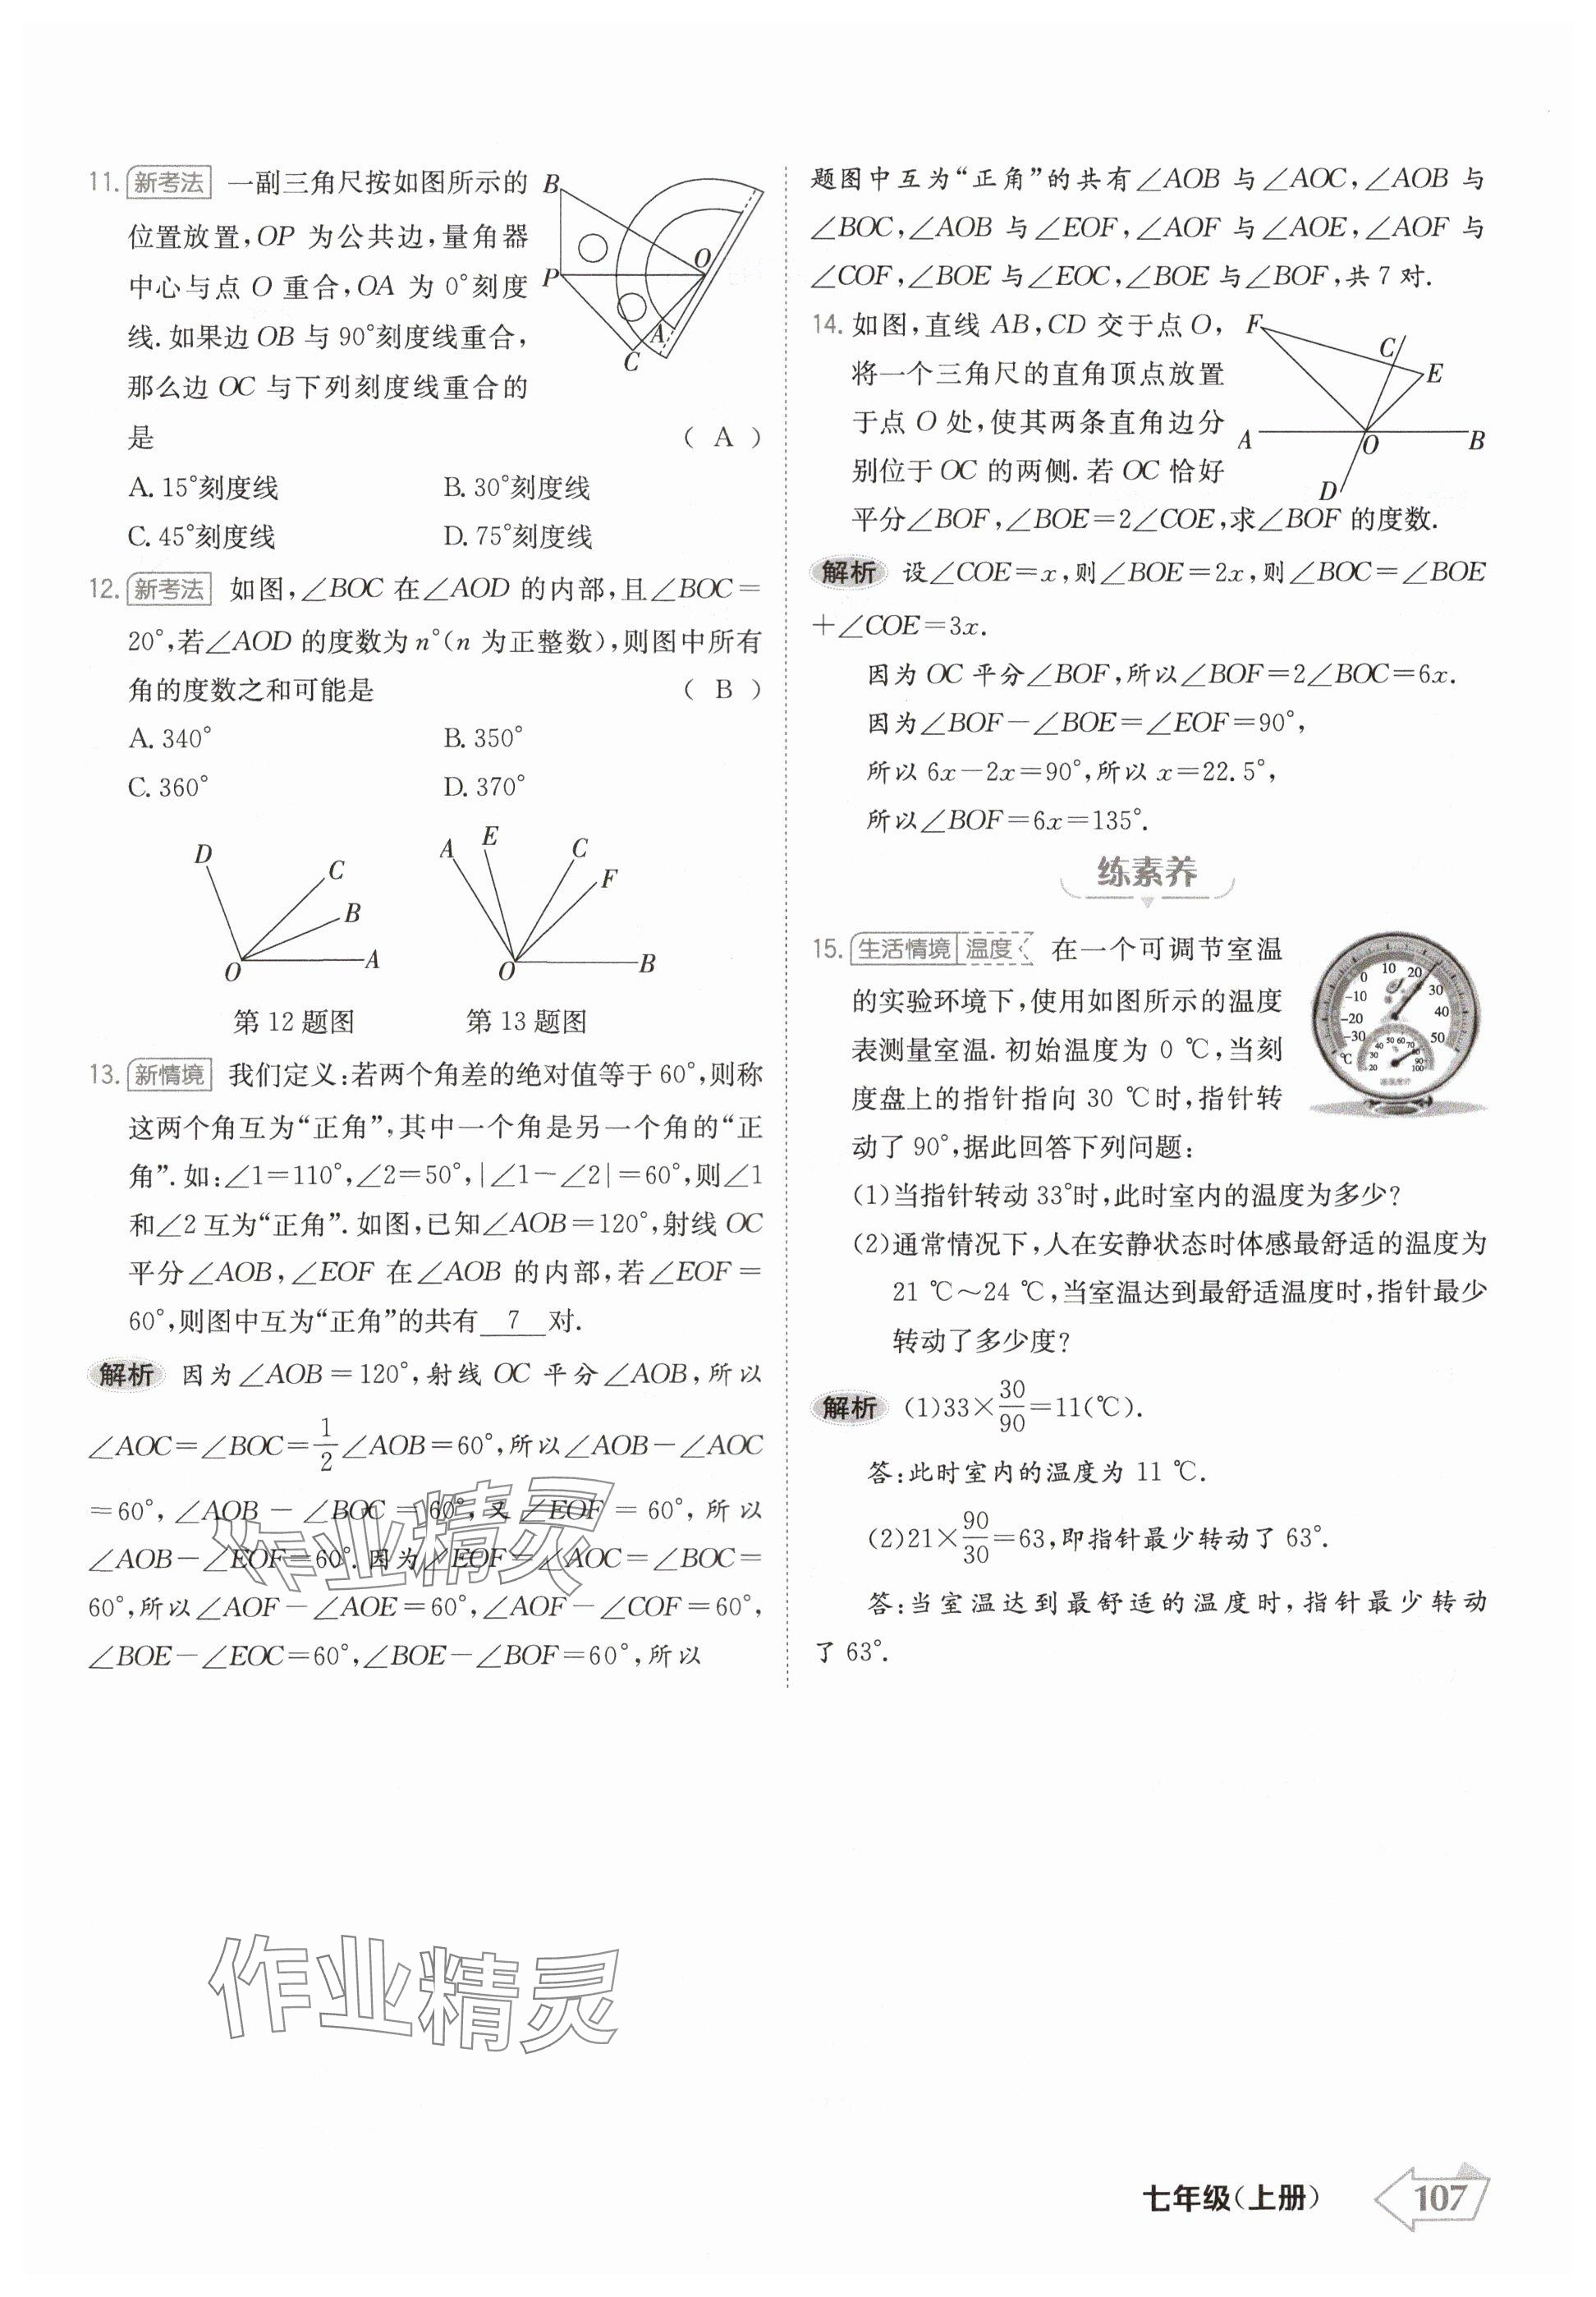 11. 新考法 一副三角尺按如图所示的
位置放置,OP 为公共边,量角器
中心与点 O 重合,OA 为 0°刻度
线.如果边 OB 与 90°刻度线重合,
那么边 OC 与下列刻度线重合的
是 ( A )
A. 15°刻度线 B. 30°刻度线
C. 45°刻度线 D. 75°刻度线
B
P
O
A
C
12. 新考法 如图,∠BOC 在∠AOD 的内部,且∠BOC=
20°,若∠AOD 的度数为 n°(n 为正整数),则图中所有
角的度数之和可能是 ( B )
A. 340° B. 350°
C. 360° D. 370°
D
C
B
O
A
A
E
C
F
O
B
第 12 题图 第 13 题图
13. 新情境 我们定义:若两个角差的绝对值等于 60°,则称
这两个角互为“正角”,其中一个角是另一个角的“正
角”.如:∠1=110°,∠2=50°,|∠1-∠2|=60°,则∠1
和∠2 互为“正角”.如图,已知∠AOB=120°,射线 OC
平分∠AOB,∠EOF 在∠AOB 的内部,若∠EOF=
60°,则图中互为“正角”的共有 7 对.
解析 因为∠AOB=120°,射线 OC 平分∠AOB,所以
∠AOC=∠BOC=1/2∠AOB=60°,所以∠AOB-∠AOC
=60°,∠AOB-∠BOC=60°,又∠EOF=60°,所以
∠AOB-∠EOF=60°.因为∠EOF=∠AOC=∠BOC=
60°,所以∠AOF-∠AOE=60°,∠AOF-∠COF=60°,
∠BOE-∠EOC=60°,∠BOE-∠BOF=60°,所以
题图中互为“正角”的共有∠AOB 与∠AOC,∠AOB 与
∠BOC,∠AOB 与∠EOF,∠AOF 与∠AOE,∠AOF 与
∠COF,∠BOE 与∠EOC,∠BOE 与∠BOF,共 7 对.
14. 如图,直线 AB,CD 交于点 O,
将一个三角尺的直角顶点放置
于点 O 处,使其两条直角边分
别位于 OC 的两侧.若 OC 恰好
平分∠BOF,∠BOE=2∠COE,求∠BOF 的度数.
F
C
E
A
O
B
D
解析 设∠COE=x,则∠BOE=2x,则∠BOC=∠BOE
+∠COE=3x.
因为 OC 平分∠BOF,所以∠BOF=2∠BOC=6x.
因为∠BOF-∠BOE=∠EOF=90°,
所以 6x-2x=90°,所以 x=22.5°,
所以∠BOF=6x=135°.
练素养
15. 生活情境 温度 在一个可调节室温
的实验环境下,使用如图所示的温度
表测量室温.初始温度为 0 ℃,当刻
度盘上的指针指向 30 ℃时,指针转
动了 90°,据此回答下列问题:
-30 -20 -10 0 10 20 30 40 50
℃
20 30 40 50 60 70 80 90 100
(1)当指针转动 33°时,此时室内的温度为多少?
(2)通常情况下,人在安静状态时体感最舒适的温度为
21 ℃~24 ℃,当室温达到最舒适温度时,指针最少
转动了多少度?
解析 (1)33×30/90=11(℃).
答:此时室内的温度为 11 ℃.
(2)21×90/30=63,即指针最少转动了 63°.
答:当室温达到最舒适的温度时,指针最少转动
了 63°.
作业精灵
作业精灵
七年级(上册) 107